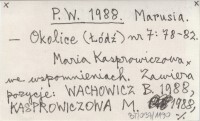 P.W. 1988. Marusia.
— Okolice (Łódź) nr 7: 78-82.
Maria Kasprowiczowa,
we wspomnieniach. Zawiera
pozycje: WACHOWICZ B. 1988,
KASPROWICZOWA M. 1988,